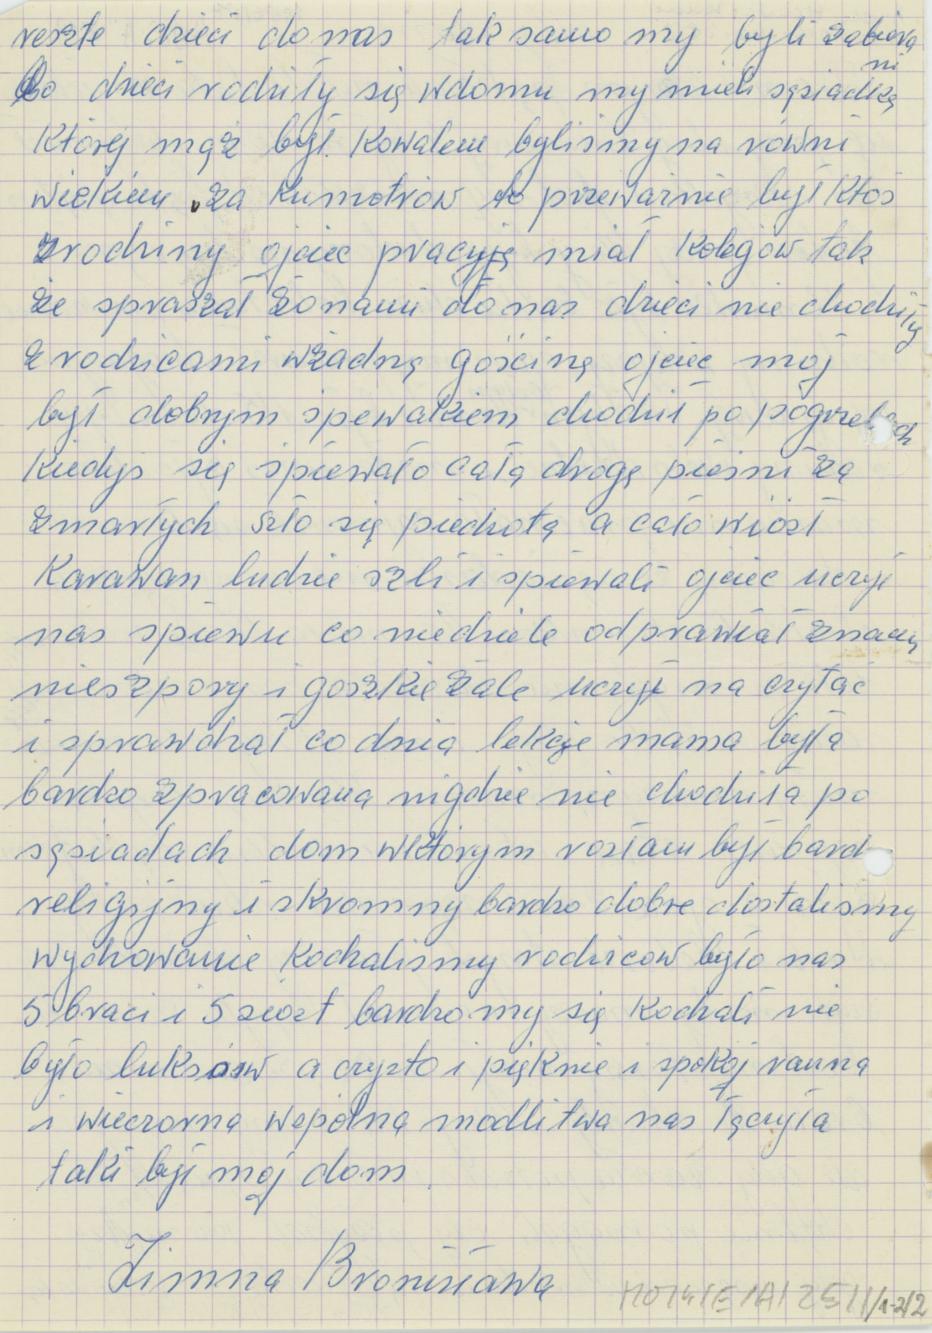 reszte dzieci do nas tak samo my byli zabiera
ni
Bo dzieci rodziły się wdomu my mieli sąsiadkę
której mąż był. Kowalem bylismy na równi
wiekiem za Kumotrów to przeważnie był ktoś
zrodziny ojciec pracyję miał Kolegów tak
że spraszał żonami do nas dzieci nie chodziły
z rodzicami wżadną gościnę ojciec moj
był dobrym spewakiem chodził po pogrzebach
Kiedyś się spiewało całą drogę pieśni za
zmarłych szło się piechotą a cało wiózł
Karawan ludzie szli i spiewali ojciec uczył
nas spiewu co niedziele odprawiał znamy
nieszpory i goszkie żale uczył na czytać
i sprawdzał co dnia lekcje mama była
bardzo zpracowana nigdzie nie chodziła po
sąsiadach dom wktórym rosłam był bard
religijny i skromny bardzo dobre dostalismy
wychowanie Kochalismy rodzicow było nas
5 braci i 5 siozt bardzo my się Kochali nie
było luksosw a czysto i pięknie i spokoj ranna
i wieczorna wspólna modlitwa nas łączyła
taki był moj dom.
Zimna Bronisława
1-2/2